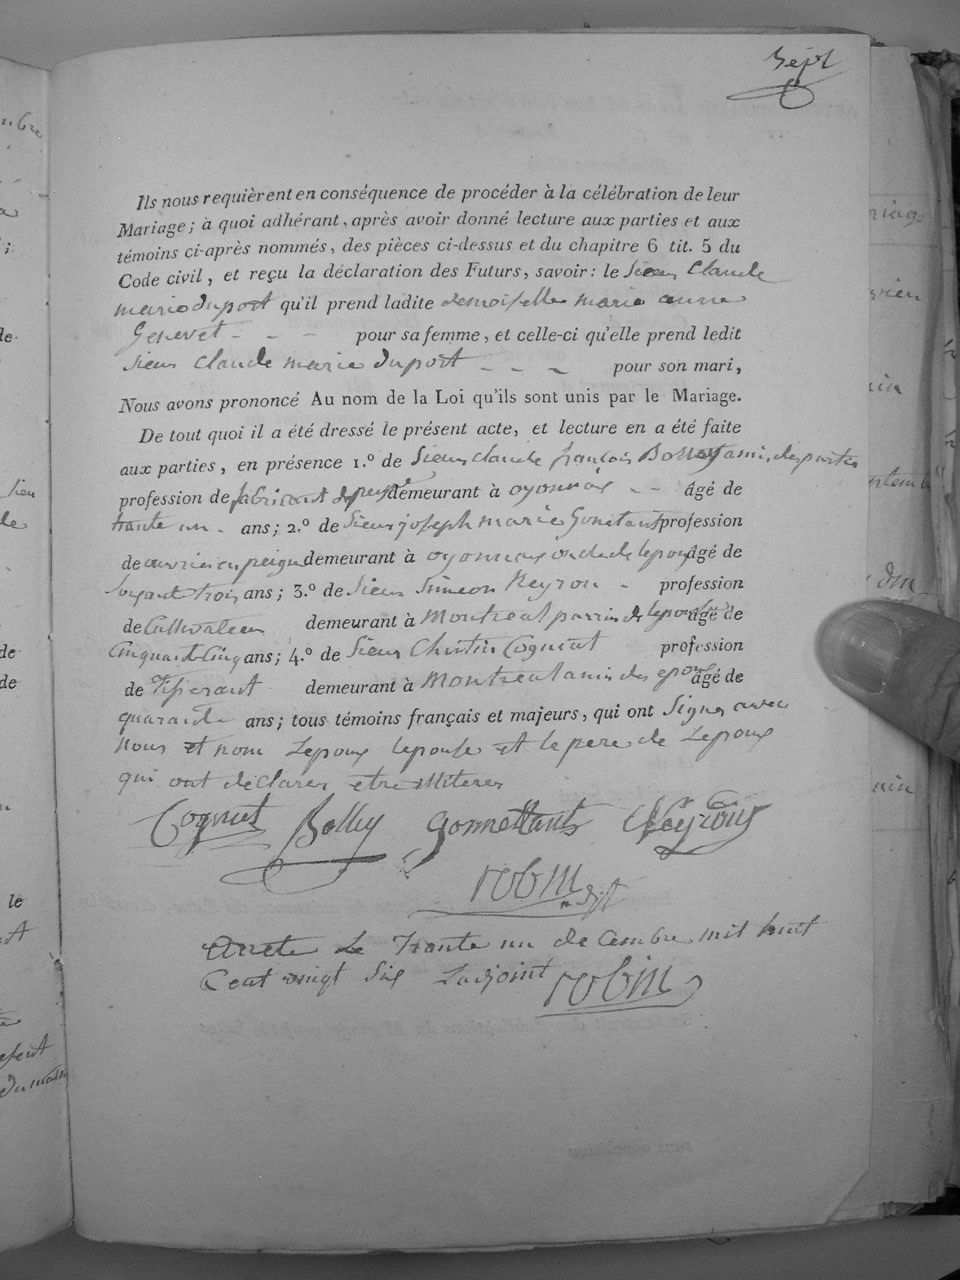 Sept
Ils nous requièrent en conséquence de procéder à la célébration de leur
Mariage; à quoi adhérant, après avoir donné lecture aux parties et aux
témoins ci-après nommés, des pièces ci-dessus et du chapitre 6 tit. 5 du
Code civil, et reçu la déclaration des Futurs, savoir: le Sieur Claude
marie duport qu'il prend ladite demoiselle marie anne
Genevet - - - pour sa femme, et celle-ci qu'elle prend ledit
Sieur Claude marie duport - - - pour son mari,
Nous avons prononcé Au nom de la Loi qu'ils sont unis par le Mariage.
De tout quoi il a été dressé le présent acte, et lecture en a été faite
aux parties, en présence 1.º de Sieur Claude françois Bolley ami des parties
profession de fabricant de peigne demeurant à oyonnax - - âgé de
trante un - ans; 2.º de Sieur joseph marie Gonetant profession
de ouvrier en peigne demeurant à oyonnax oncle de lepoux âgé de
Soixante trois ans; 3.º de Sieur Simeon Neyron - profession
de Cultivateur demeurant à Montreal parrin de lepouse âgé de
Cinquante Cinq ans; 4.º de Sieur Cognat profession
de Tisserant demeurant à Montreal ami des epoux âgé de
quarante ans; tous témoins français et majeurs, qui ont Signes avec
nous et nom Lepoux lepouse et le pere de Lepoux
qui ont déclarer etre illiteres
Bolley gonnettant Neyron
robin
Arrete Le Trante un de Cembre mil huit
Cent vingt Six Ladjoint robin